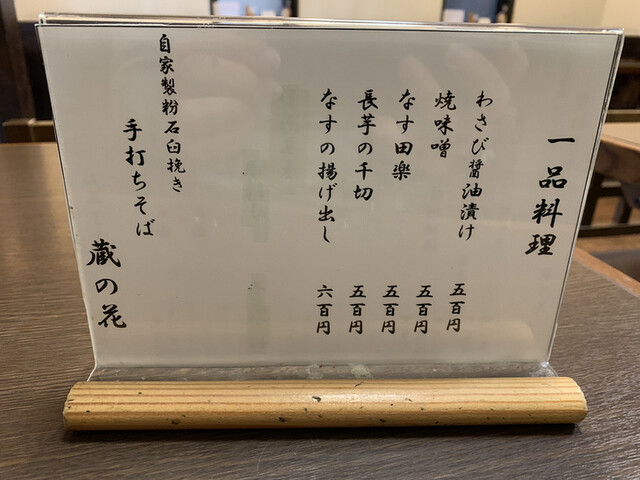 一品料理
わさび醤油漬け 五百円
焼味噌 五百円
なす田楽 五百円
長芋の千切 五百円
なすの揚げ出し 六百円
自家製粉石臼挽き
手打ちそば
蔵の花